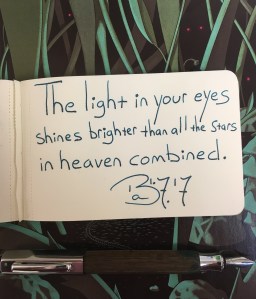 The light in your eyes
shines brighter than all the stars
in heaven combined.